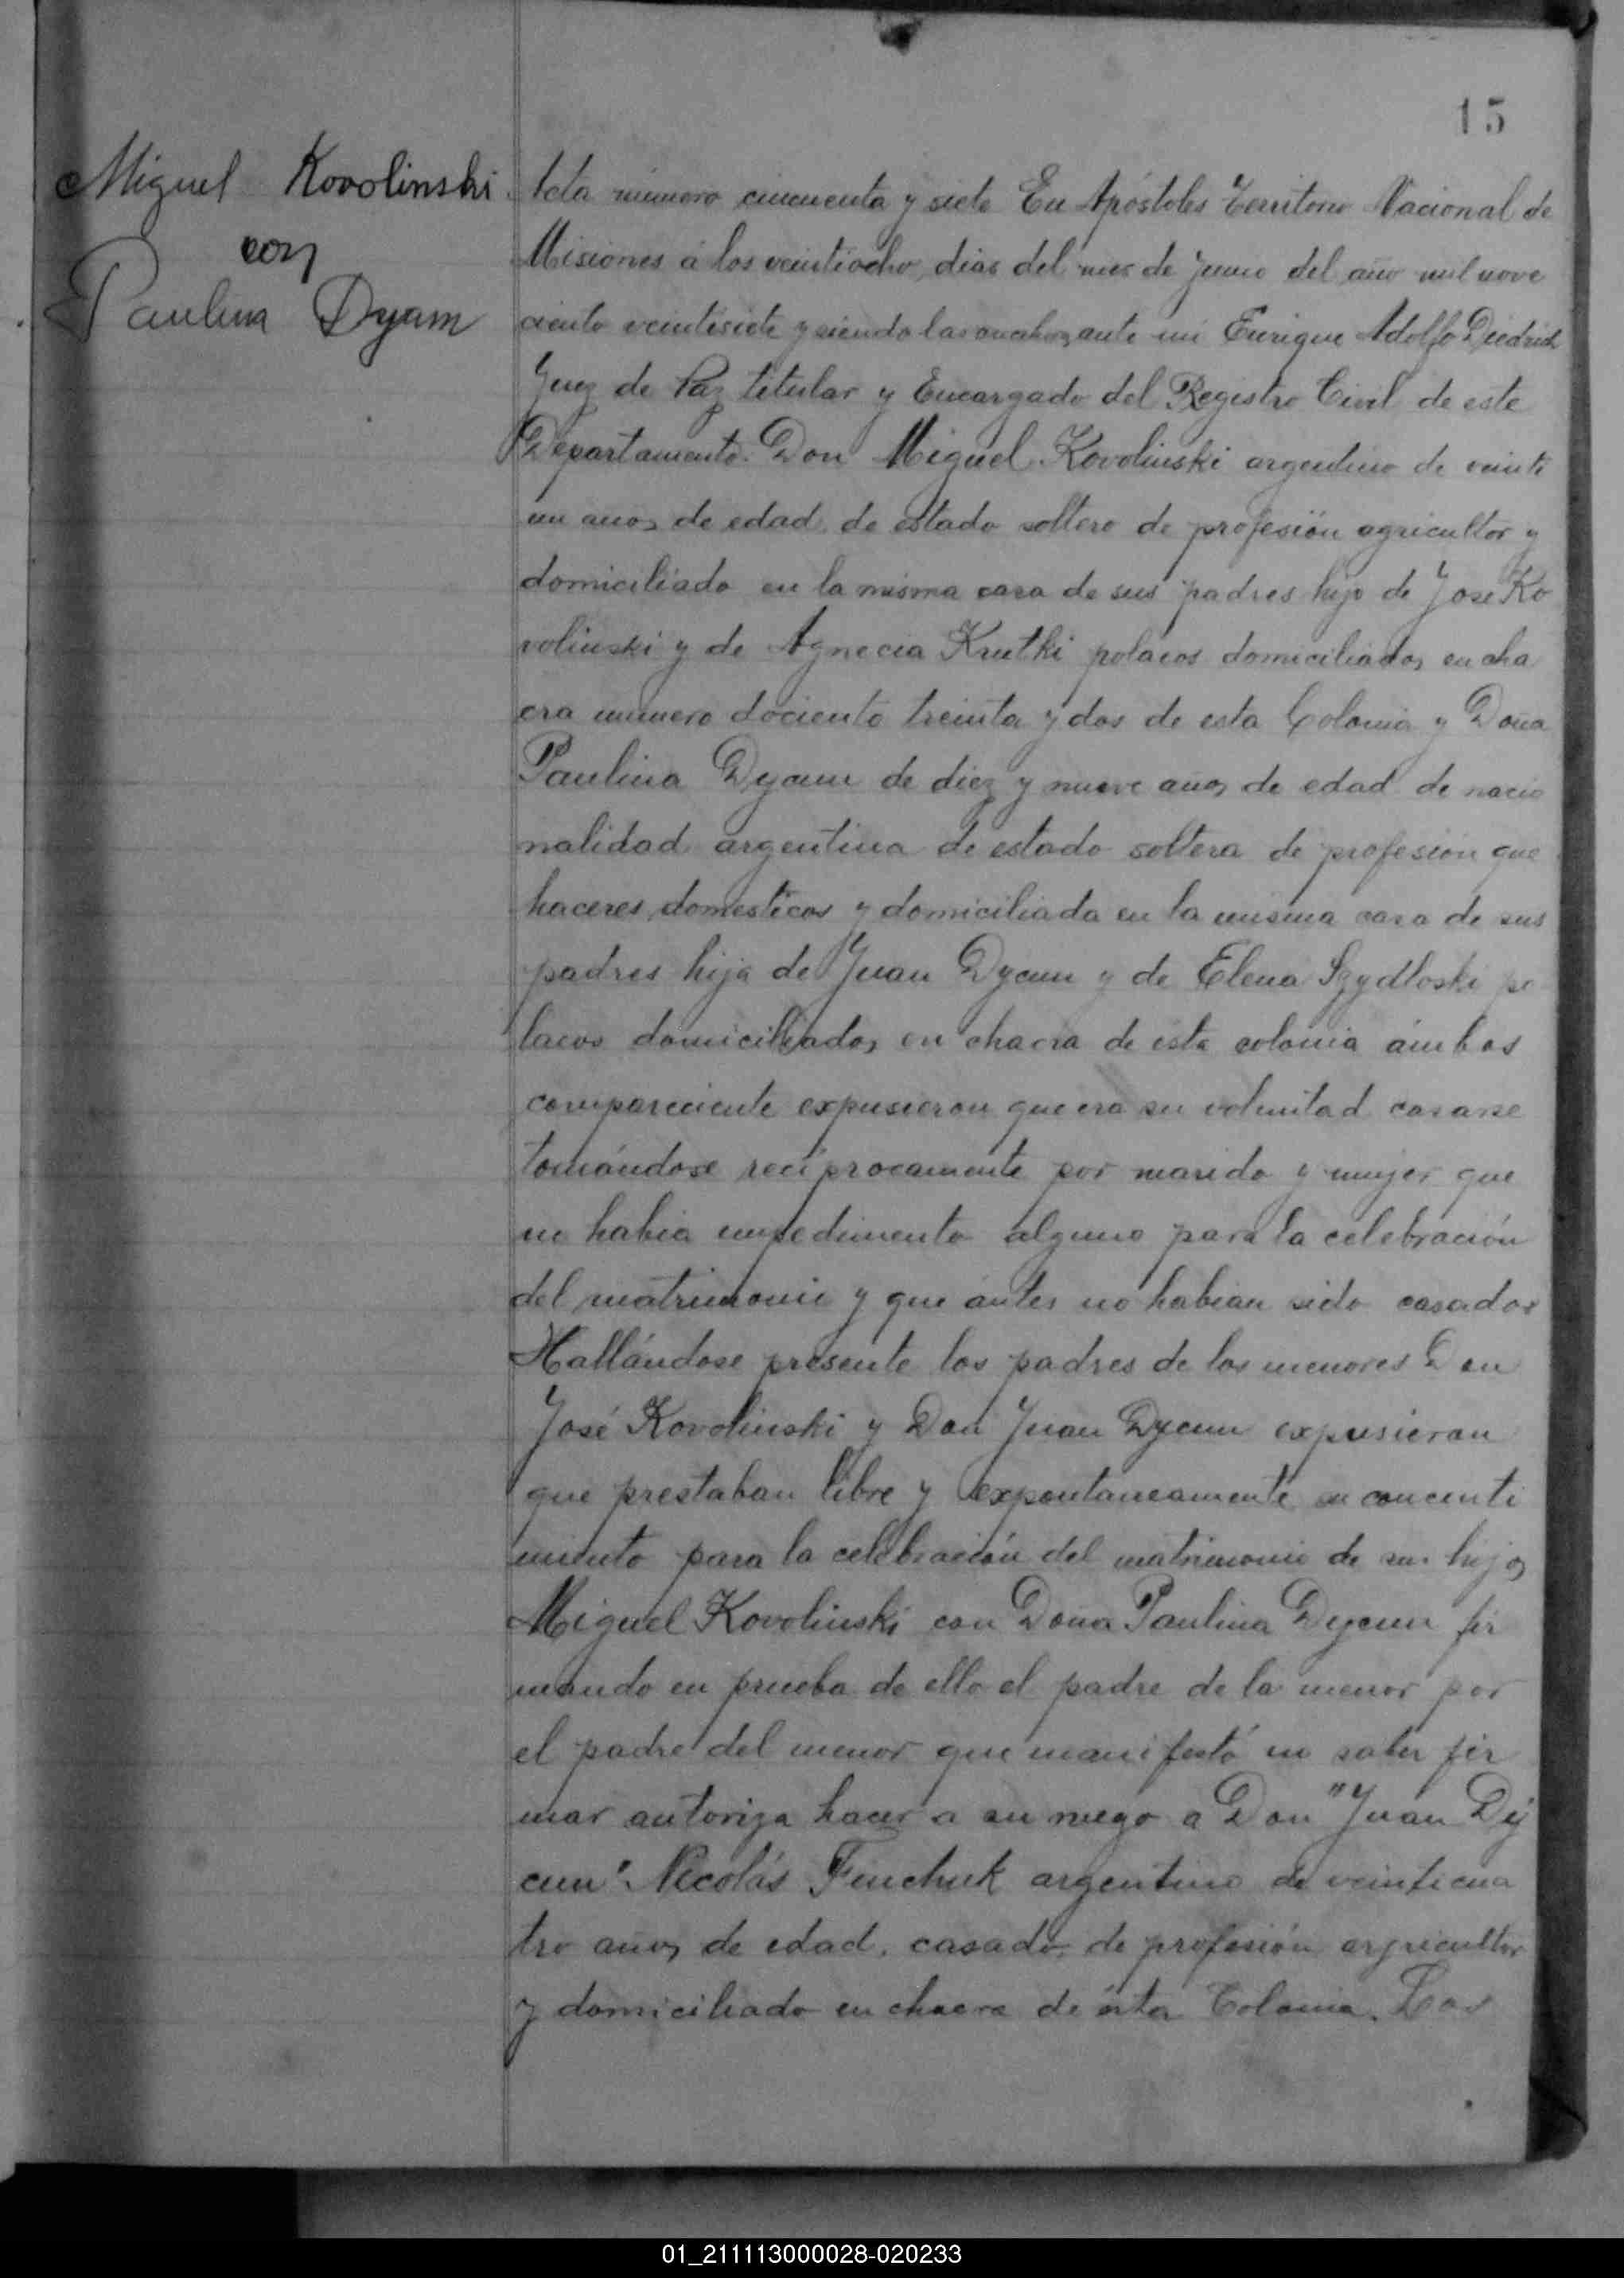 15
Miguel Kovolinski
con
Paulina Dyam
Acta número cincuenta y siete En Apóstoles Territorio Nacional de
Misiones á los veintiocho dias del mes de Junio del año mil nove
ciento veintisiete y siendo las once horas ante mi Enrique Adolfo Diedrich
Juez de Paz titular y Encargado del Registro Civil de este
Departamento. Don Miguel Kovolinski argentino de veinti
un años de edad de estado soltero de profesión agricultor y
domiciliado en la misma casa de sus padres hijo de Jose Ko
volinski y de Agnecia Krutki polacos domiciliados en cha
cra numero dociento treinta y dos de esta Colonia y Doña
Paulina Dycun de diez y nueve años de edad de nacio
nalidad argentina de estado soltera de profesión que
haceres domesticos y domiciliada en la misma casa de sus
padres hija de Juan Dycun y de Elena Szydloski po
lacos domiciliados en chacra de esta colonia ámbos
compareciente expusieron que era su voluntad casarse
tomándose recíprocamente por marido y mujer que
no habia impedimento alguno para la celebración
del matrimonio y que ántes no habian sido casados
Hallándose presente los padres de los menores Don
José Kovolinski y Don Juan Dycun expusieran
que prestaban libre y expontaneamente su concenti
miento para la celebración del matrimonio de sus hijos
Miguel Kovolinski con Doña Paulina Dycun fir
mando en prueba de ello el padre de la menor por
el padre del menor que manifestó no saber fir
mar autoriza hacer a su ruego a Don "Juan Dy
cun" Nicolás Fenchuk argentino de veinticua
tro años de edad, casado, de profesión agricultor
y domiciliado en chacra de ésta Colonia. Los
01_211113000028-020233